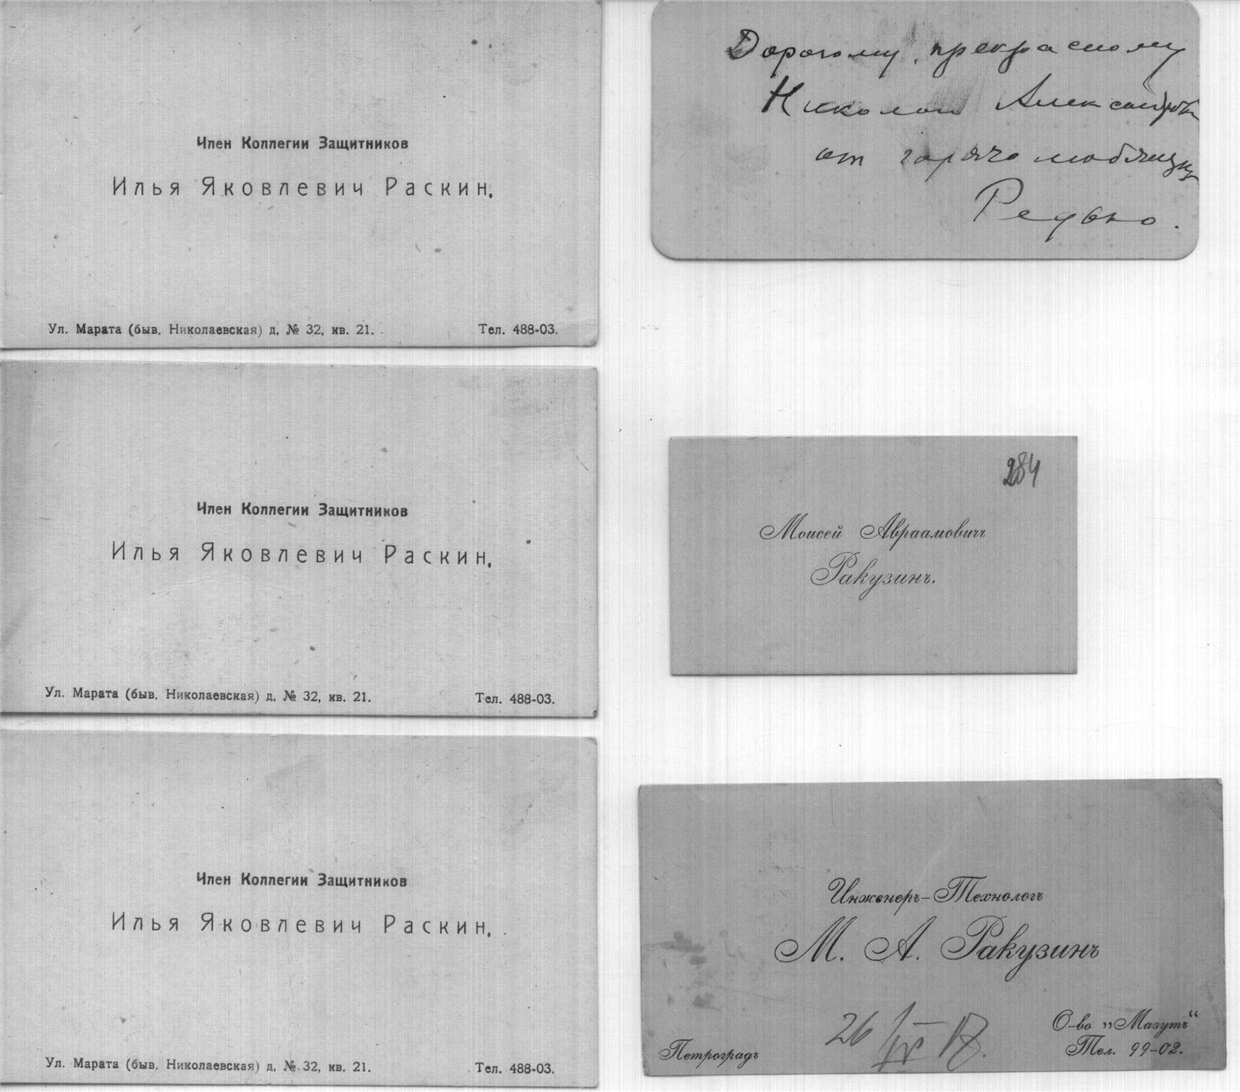 Член Коллегии Защитников
Илья Яковлевич Раскин.
Ул. Марата (быв. Николаевская) д. № 32, кв. 21. Тел. 488-03.
Член Коллегии Защитников
Илья Яковлевич Раскин.
Ул. Марата (быв. Николаевская) д. № 32, кв. 21. Тел. 488-03.
Член Коллегии Защитников
Илья Яковлевич Раскин.
Ул. Марата (быв. Николаевская) д. № 32, кв. 21. Тел. 488-03.
Дорогому, прекрасному
Николаю
от горячо
Редько.
284
Моисей Авраамовичъ
Ракузинъ.
Инженеръ-Технологъ
М. А. Ракузинъ
26/IV 18.
Петроградъ
О-во „Мазутъ“
Тел. 99-02.